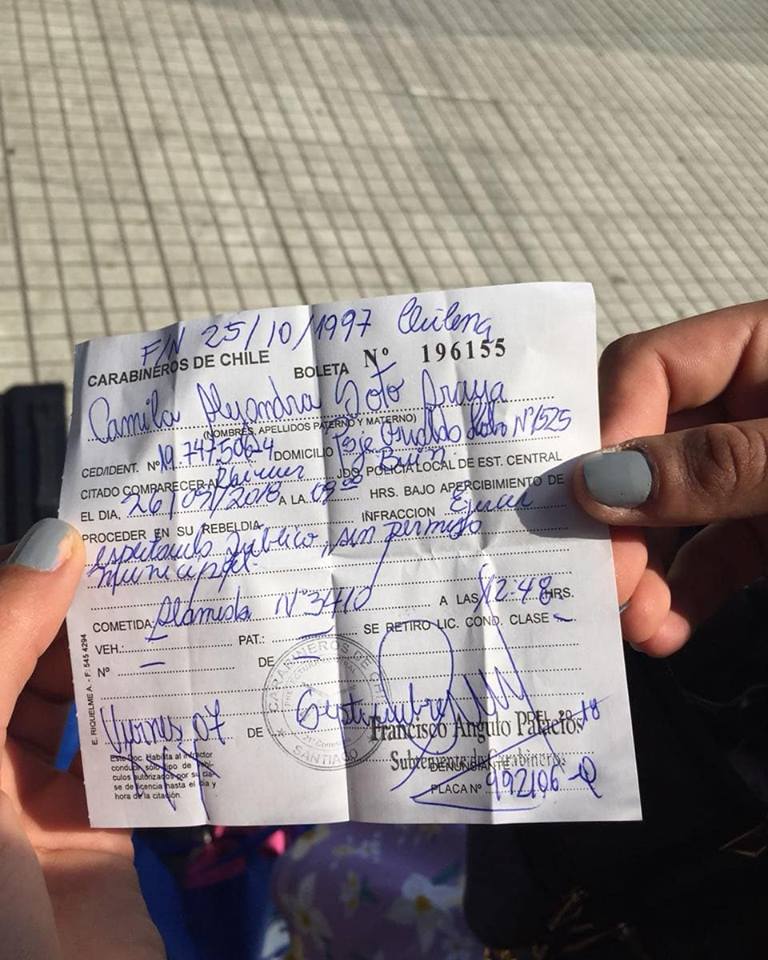 F/N 25/10/1997 Chilena
CARABINEROS DE CHILE BOLETA Nº 196155
Camila Alejandra Soto Araya
(NOMBRES, APELLIDOS PATERNO Y MATERNO)
CED/IDENT. Nº 19.747506-4 DOMICILIO José Nº1525
CITADO COMPARECER A JDO. POLICIA LOCAL DE EST. CENTRAL
EL DIA, 26/09/2018 A LA HRS. BAJO APERCIBIMIENTO DE
PROCEDER EN SU REBELDIA INFRACCION Ejercer
espectaculo Público, sin permiso
municipal.
COMETIDA: Alameda Nº3410 A LAS 12-48 HRS.
VEH.: — PAT.: — SE RETIRO LIC. COND. CLASE —
Nº — DE —
Viernes 07 DE Septiembre DEL 2018
CARABINEROS DE CHILE
SANTIAGO
Francisco Angulo Palacios
Subteniente de Carabineros
DENUNCIANTE
PLACA Nº 992106-Q
Este Doc. Habilita al infractor
conducir sólo tipo de vehí-
culos autorizados por su cla-
se de licencia hasta el día y
hora de la citación.
E. RIQUELME A. - F: 545 4294